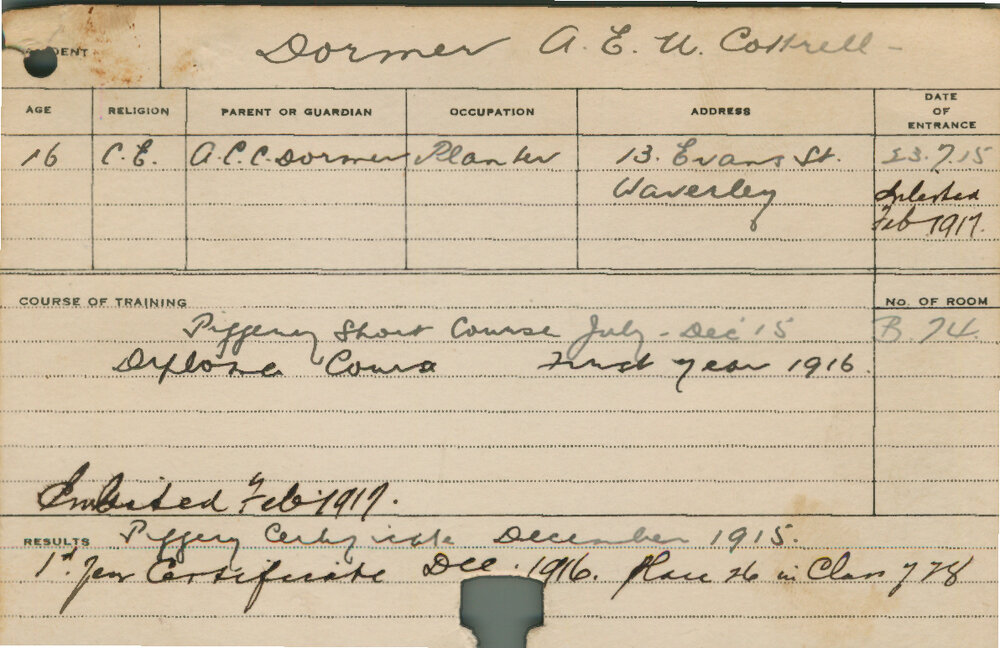 DENT
Dormer A. E. U. Cottrell -
AGE RELIGION PARENT OR GUARDIAN OCCUPATION ADDRESS DATE OF ENTRANCE
16 C.E. A.C.C. Dormer Planter 13. Evans St. 23.7.15
Waverley Enlisted
Feb 1917.
COURSE OF TRAINING No. OF ROOM
Piggery Short Course July - Dec 15 B. 74.
Diploma Course First year 1916.
Enlisted Feb. 1917.
RESULTS Piggery Certificate December 1915.
1st Year Certificate Dec. 1916. Place 26 in Class of 28